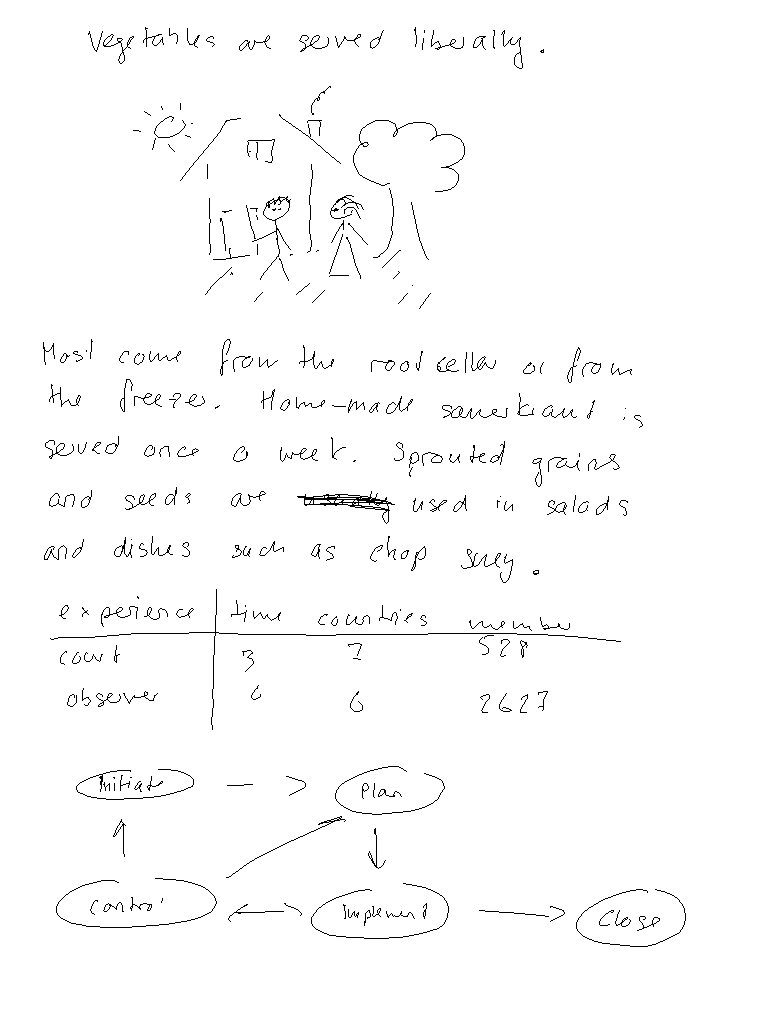 Vegetables are served liberally.
Most come from the root cellar or from
the freezer. Home-made sauerkraut is
served once a week. Sprouted grains
and seeds are used in salads
and dishes such as chop suey.
experience time countries member
court 3 7 528
observer 6 6 2627
Initiate Plan
Control Implement Close